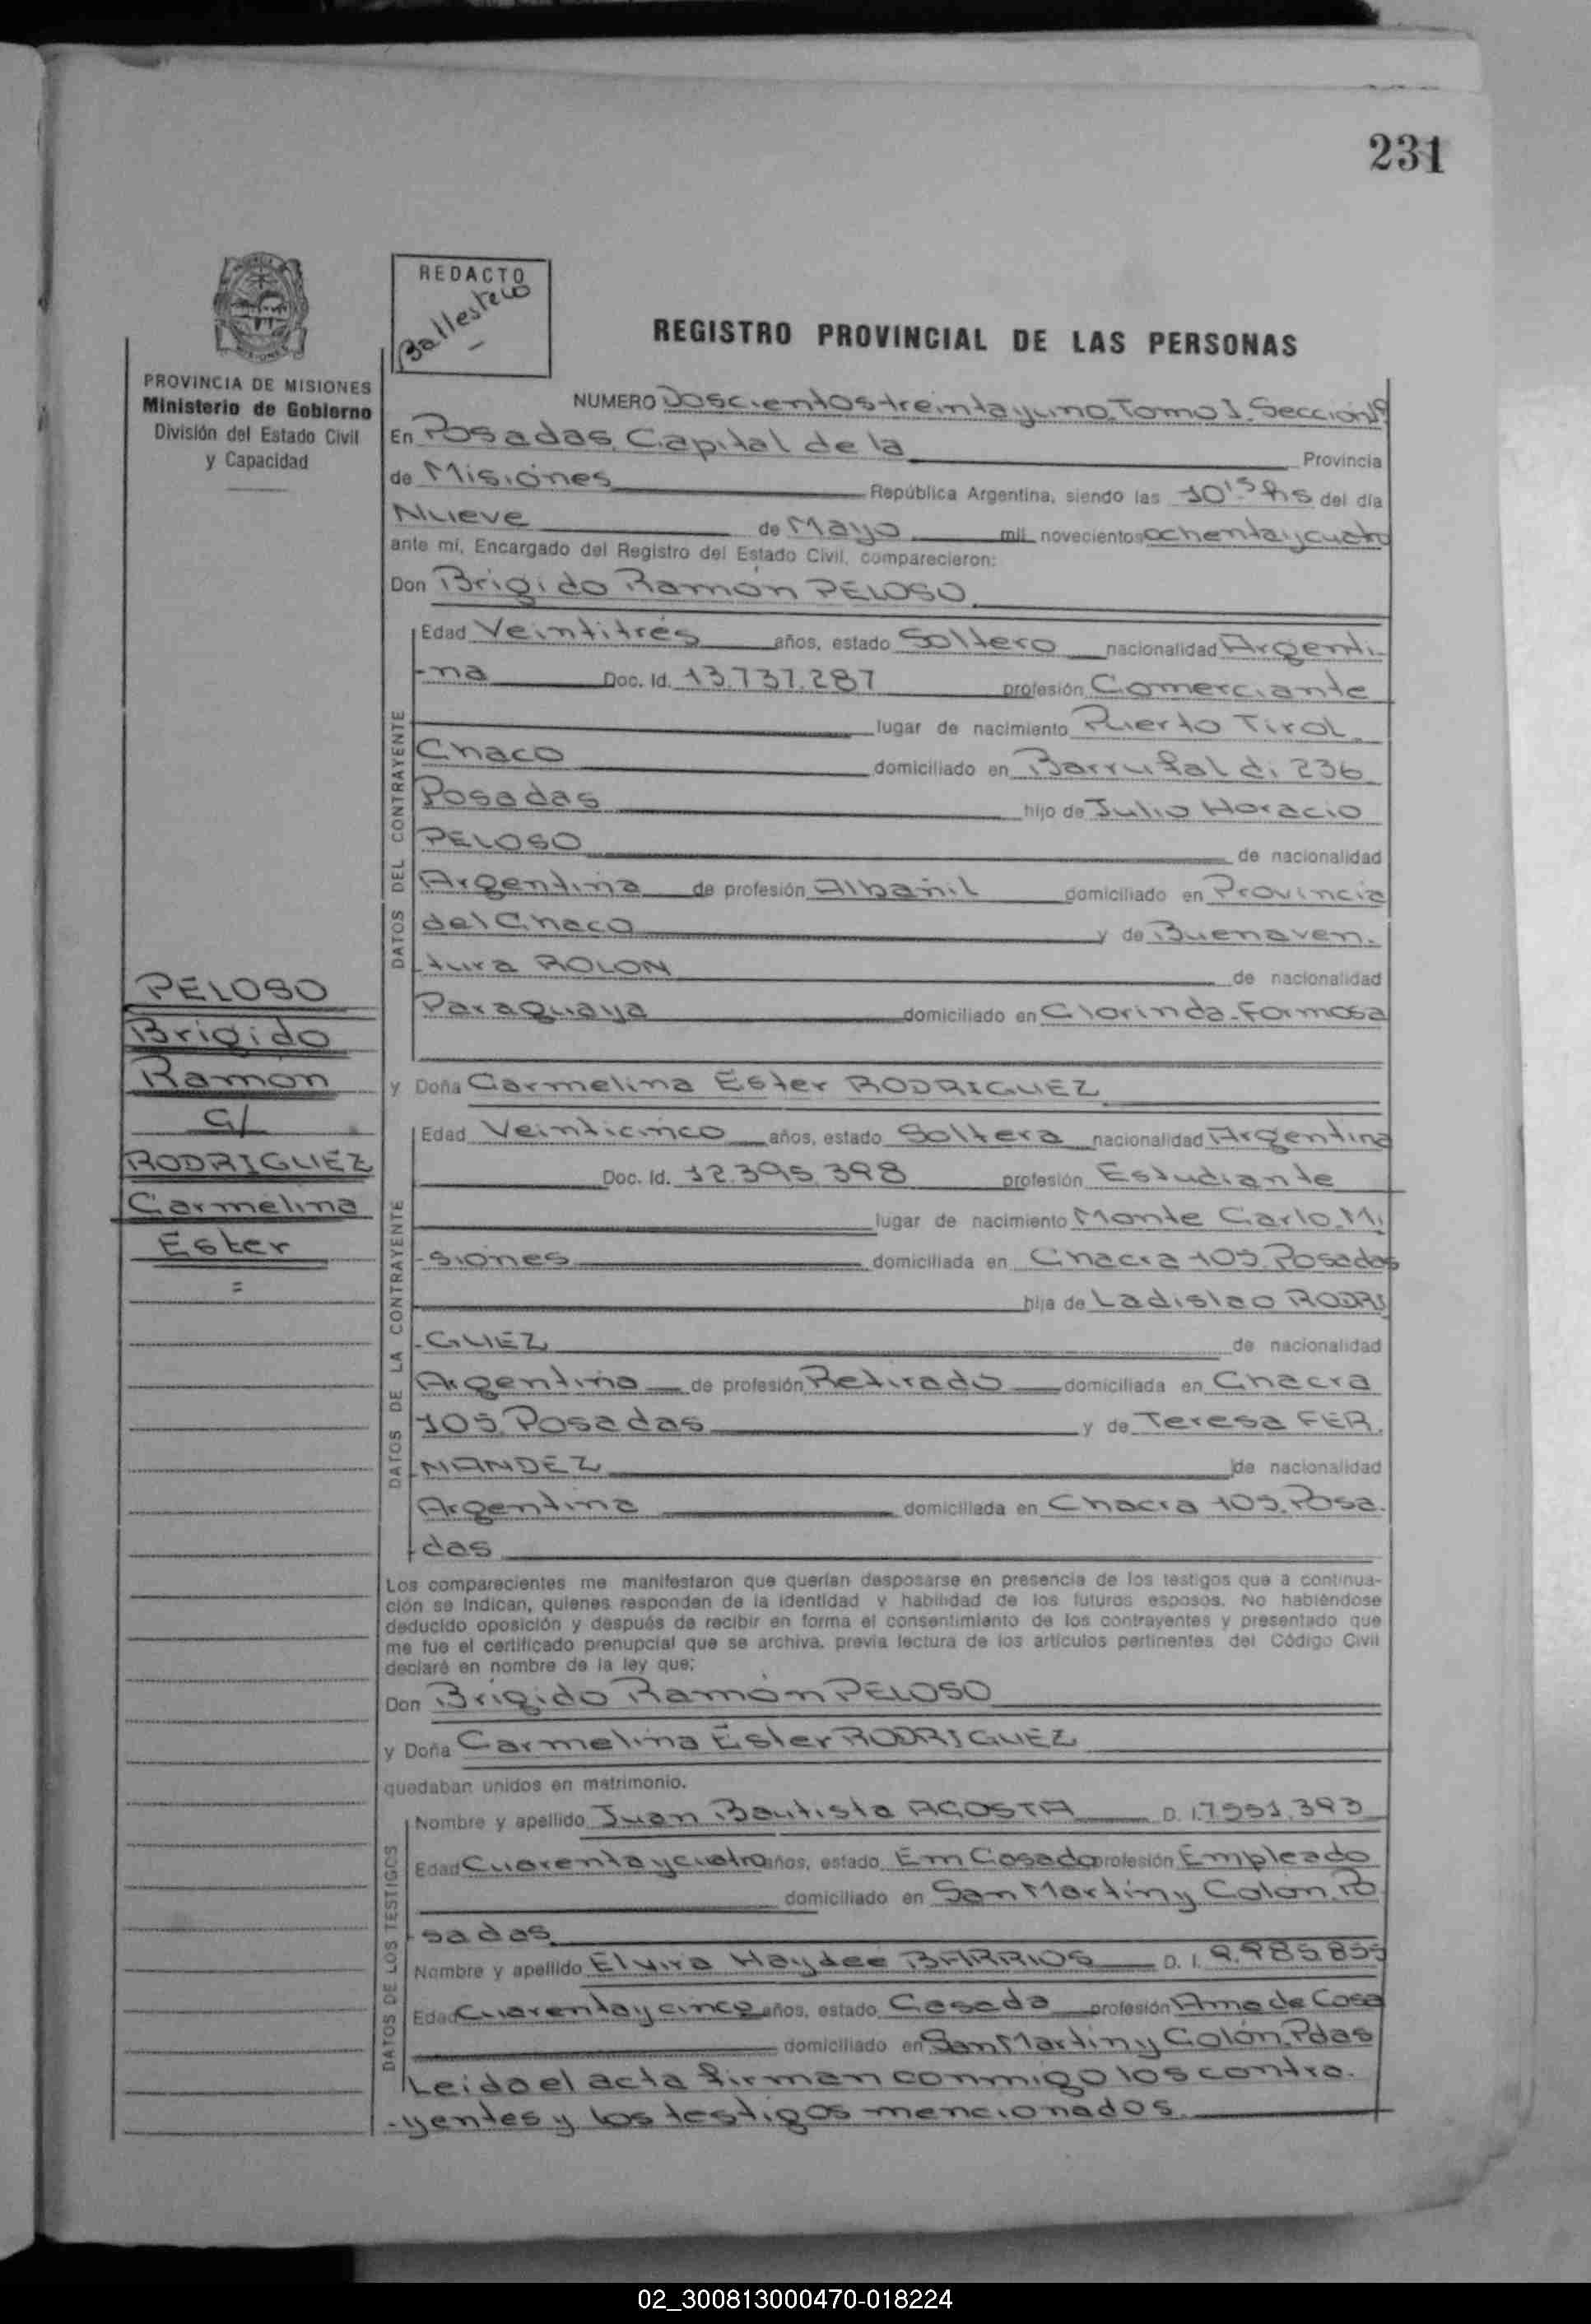 231
REDACTO
Ballestero
REGISTRO PROVINCIAL DE LAS PERSONAS
PROVINCIA DE MISIONES
Ministerio de Gobierno
División del Estado Civil
y Capacidad
NUMERO Doscientos treinta y uno. Tomo I. Sección 1ª
En Posadas, Capital de la Provincia
de Misiones República Argentina, siendo las 10 hs del día
Nueve de Mayo mil novecientos ochenta y cuatro
ante mí, Encargado del Registro del Estado Civil, comparecieron:
Don Brígido Ramón PELOSO
DATOS DEL CONTRAYENTE
Edad Veintitrés años, estado Soltero nacionalidad Argenti-
-na Doc. Id. 13.737.287 profesión Comerciante
lugar de nacimiento Puerto Tirol
Chaco domiciliado en 236
Posadas hijo de Julio Horacio
PELOSO de nacionalidad
Argentina de profesión Albañil domiciliado en Provincia
del Chaco y de Buenaven-
tura ROLON de nacionalidad
Paraguaya domiciliado en Clorinda-Formosa
PELOSO
Brígido
Ramón
C/
RODRIGUEZ
Carmelina
Ester
=
y Doña Carmelina Ester RODRIGUEZ
DATOS DE LA CONTRAYENTE
Edad Veinticinco años, estado Soltera nacionalidad Argentina
Doc. Id. 12.395.398 profesión Estudiante
lugar de nacimiento Monte Carlo. Mi
-siones domiciliada en Chacra 105. Posadas
hija de Ladislao RODRI
-GUEZ de nacionalidad
Argentino de profesión Retirado domiciliada en Chacra
105. Posadas y de Teresa FER-
NANDEZ de nacionalidad
Argentina domiciliada en Chacra 105. Posa-
das
Los comparecientes me manifestaron que querían desposarse en presencia de los testigos que a continua-
ción se indican, quienes responden de la identidad y habilidad de los futuros esposos. No habiéndose
deducido oposición y después de recibir en forma el consentimiento de los contrayentes y presentado que
me fue el certificado prenupcial que se archiva, previa lectura de los artículos pertinentes del Código Civil
declaré en nombre de la ley que;
Don Brígido Ramón PELOSO
y Doña Carmelina Ester RODRIGUEZ
quedaban unidos en matrimonio.
DATOS DE LOS TESTIGOS
Nombre y apellido Juan Bautista ACOSTA D. I. 7.551.393
Edad Cuarenta y cuatro años, estado Em Casado profesión Empleado
domiciliado en San Martín y Colón. Po
sadas
Nombre y apellido Elvira Haydeé BARRIOS D. I. 9.985.855
Edad Cuarenta y cinco años, estado Casada profesión Ama de Casa
domiciliado en San Martín y Colón. Pdas
Leido el acta firman conmigo los contra-
-yentes y los testigos mencionados.
02_300813000470-018224